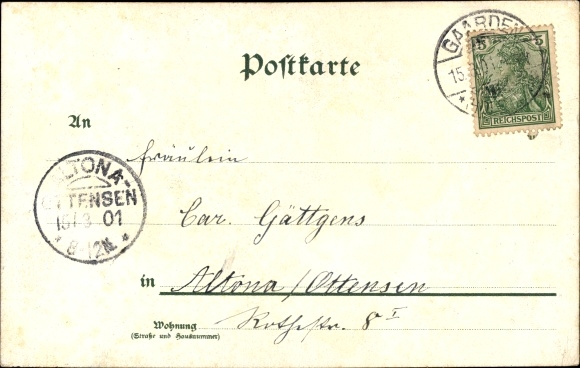 Postkarte
GAARDEN
15.
5 5
REICHSPOST
An
Fräulein
ALTONA-
OTTENSEN
15/3 01
8-12N.
Car. Gättgens
in Altona/Ottensen
Wohnung
(Straße und Hausnummer)
Rothestr. 8 I